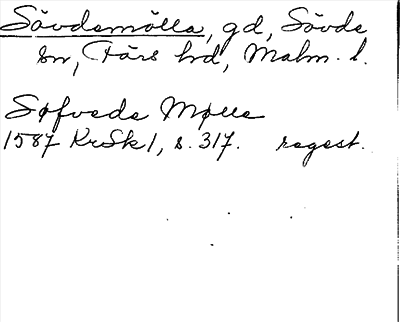 Sövdemölla, gd, Sövde
sn, Färs hrd, Malm. l.
Søfvede Mølle
1587 KrSk 1, s. 317. regest.